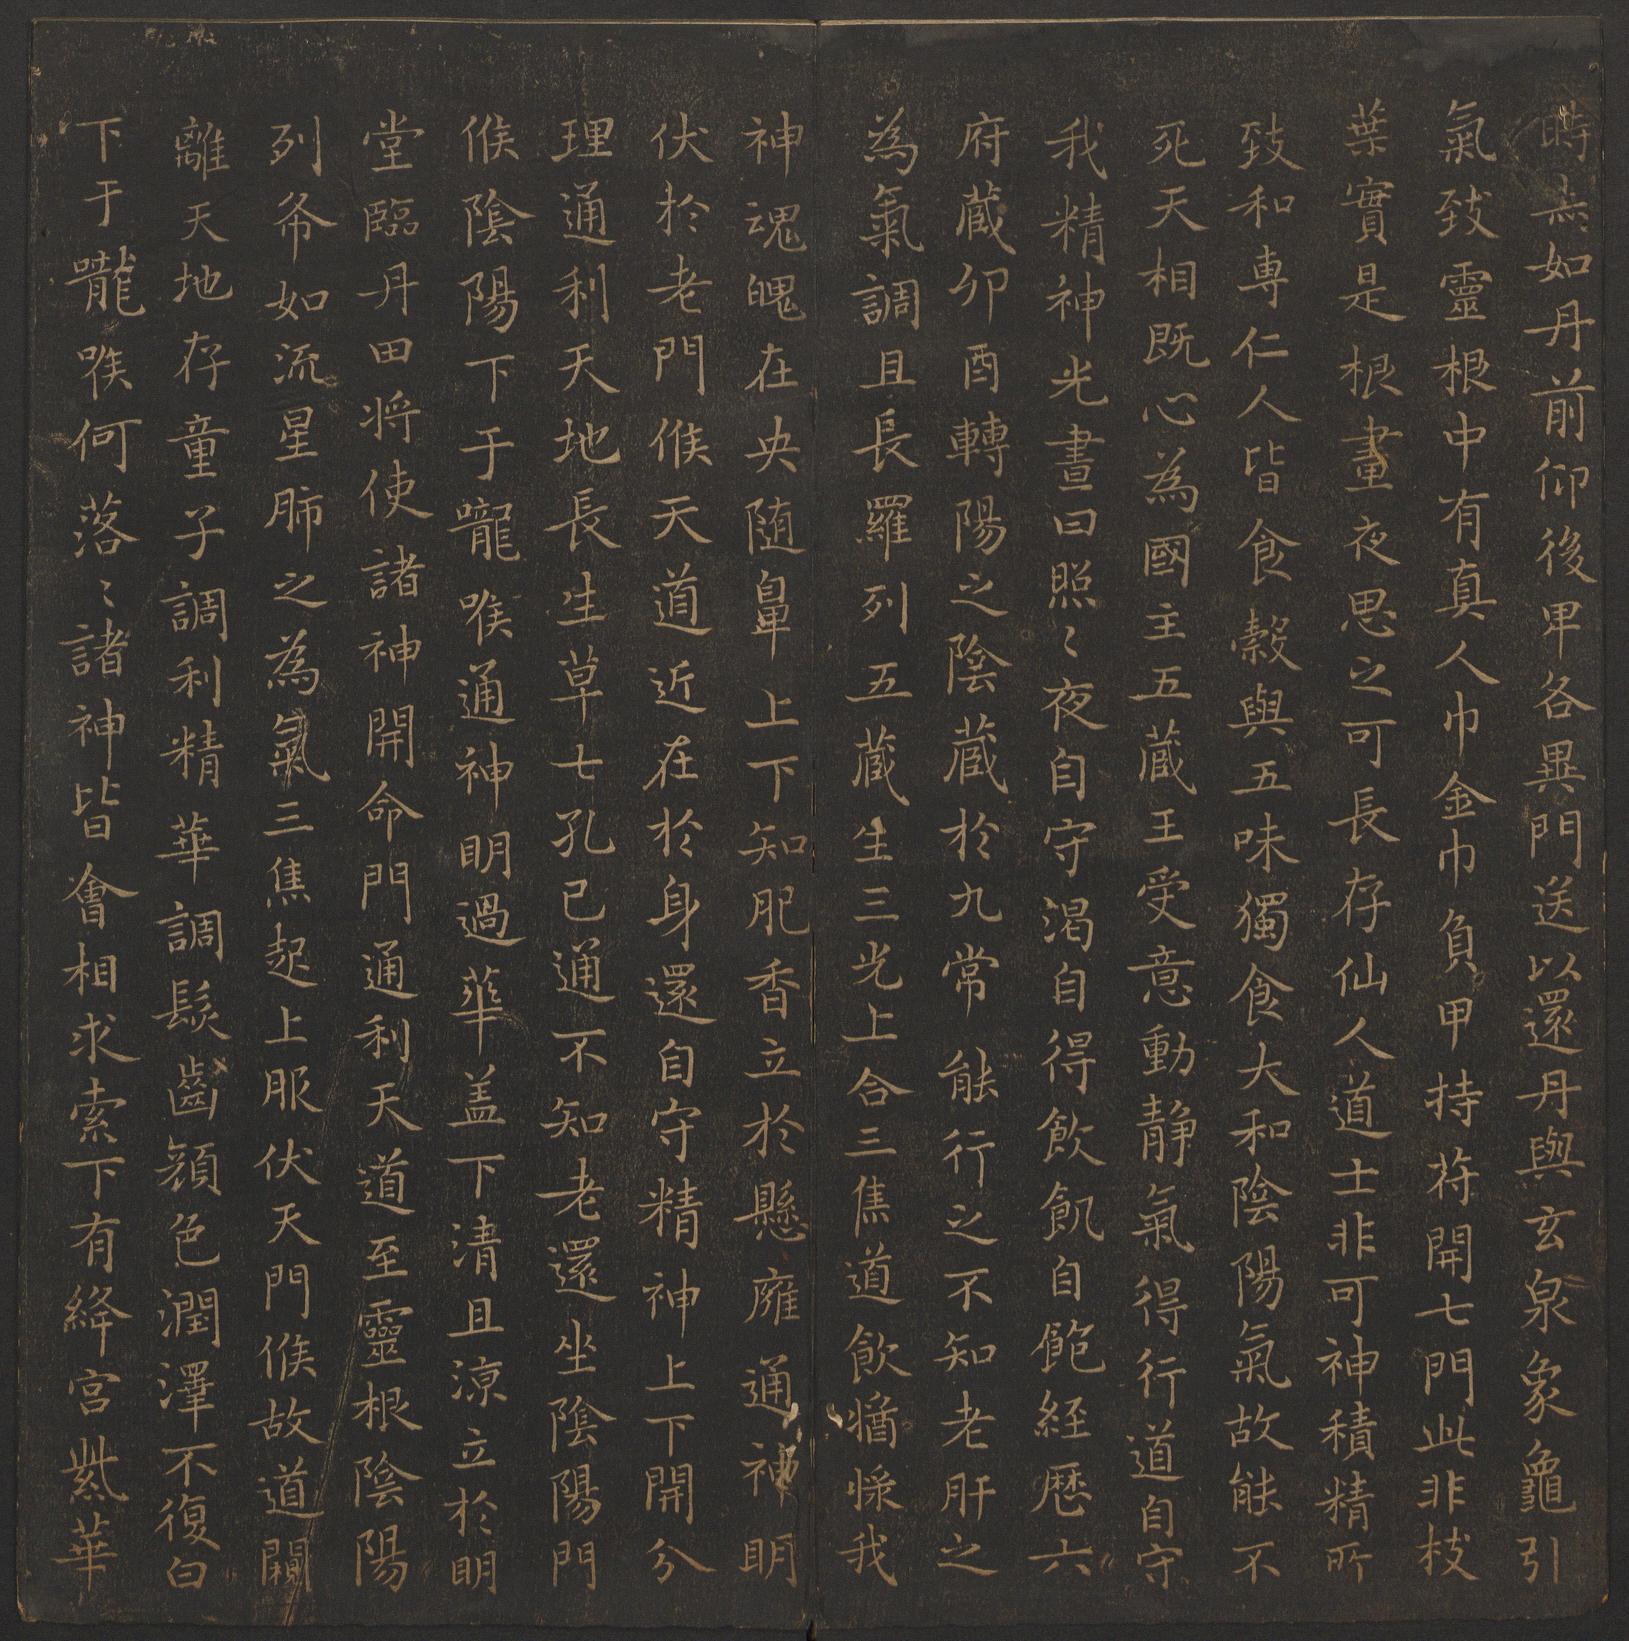 時念如丹前仰後卑各異門送以還丹與玄泉象龜引
氣致靈根中有真人巾巾金巾負甲持苻開七門此非枝
葉實是根晝夜思之可長存仙人道士非可神積精所
致和専仁人皆食穀與五味獨食大和陰陽氣故能不
死天相既心為國主五藏王受意動静氣得行道自守
我精神光晝曰照〻夜自守渴自得飲飢自飽経歷六
府藏卯酉轉陽之陰藏於九常能行之不知老肝之
為氣調且長羅列五藏生三光上合三焦道飲漿我
神魂魄在央随鼻上下知肥香立於懸癰通神明
伏於老門候天道近在於身還自守精神上下開分
理通利天地長生草七孔已通不知老還坐陰陽門
候陰陽下于嚨喉通神明過華盖下清且涼立於明
堂臨丹田将使諸神開命門通利天道至靈根陰陽
列布如流星肺之為氣三焦起上服伏天門候故道闚
離天地存童子調利精華調髮齒顔色潤澤不復白
下于嚨喉何落〻諸神皆會相求索下有絳宮紫華